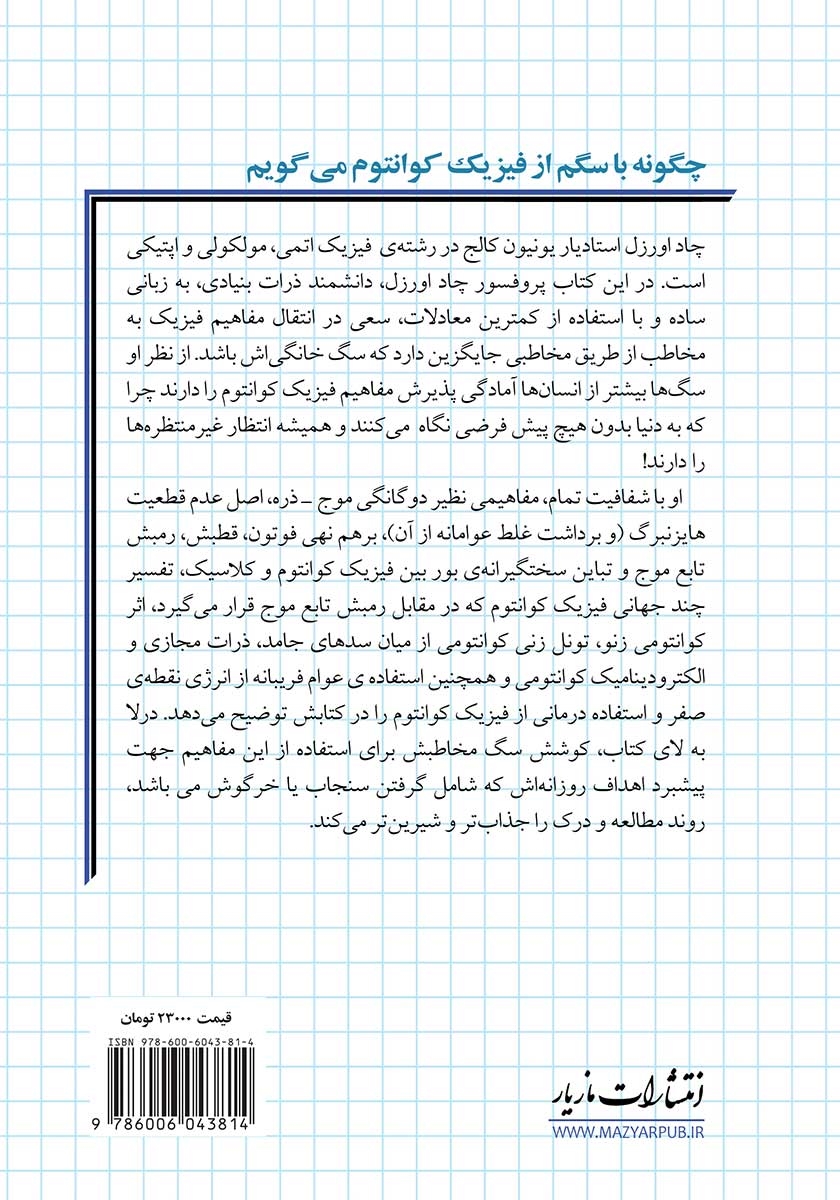 چگونه با سگم از فیزیک کوانتوم می‌گویم
چاد اورزل استادیار یونیون کالج در رشته‌ی فیزیک اتمی، مولکولی و اپتیکی
است. در این کتاب پروفسور چاد اورزل، دانشمند ذرات بنیادی، به زبانی
ساده و با استفاده از کمترین معادلات، سعی در انتقال مفاهیم فیزیک به
مخاطب از طریق مخاطبی جایگزین دارد که سگ خانگی‌اش باشد. از نظر او
سگ‌ها بیشتر از انسان‌ها آمادگی پذیرش مفاهیم فیزیک کوانتوم را دارند چرا
که به دنیا بدون هیچ پیش فرضی نگاه می‌کنند و همیشه انتظار غیرمنتظره‌ها
را دارند!
او با شفافیت تمام، مفاهیمی نظیر دوگانگی موج ـ ذره، اصل عدم قطعیت
هایزنبرگ (و برداشت غلط عوامانه از آن)، برهم نهی فوتون، قطبش، رمبش
تابع موج و تباین سختگیرانه‌ی بور بین فیزیک کوانتوم و کلاسیک، تفسیر
چند جهانی فیزیک کوانتوم که در مقابل رمبش تابع موج قرار می‌گیرد، اثر
کوانتومی زنو، تونل زنی کوانتومی از میان سدهای جامد، ذرات مجازی و
الکترودینامیک کوانتومی و همچنین استفاده ی عوام فریبانه از انرژی نقطه‌ی
صفر و استفاده درمانی از فیزیک کوانتوم را در کتابش توضیح می‌دهد. درلا
به لای کتاب، کوشش سگ مخاطبش برای استفاده از این مفاهیم جهت
پیشبرد اهداف روزانه‌اش که شامل گرفتن سنجاب یا خرگوش می باشد،
روند مطالعه و درک را جذاب‌تر و شیرین‌تر می‌کند.
قیمت ۲۳۰۰۰ تومان
ISBN 978-600-6043-81-4
9 786006 043814
انتشارات مازیار
WWW.MAZYARPUB.IR